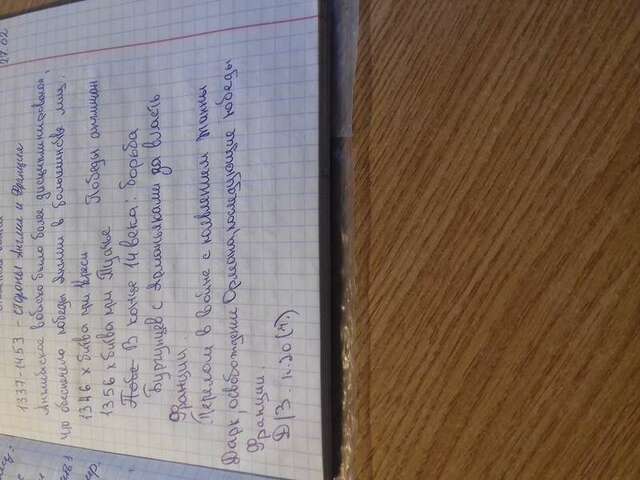 27.02
1337-1453 - стороны Англия и Франция
Английское войско было более дисциплинировано,
что обеспечило победы Англии в большинстве
1346 х битва при Креси
Победы англичан
1356 х битва при Пуатье
В конце 14 века: борьба
Бургунцев с Арманьяками за власть
Франции.
Перелом в войне с появлением Жанны
Дарк, освобождение последующие победы
Франции.
Д/З. п.20 (т.)